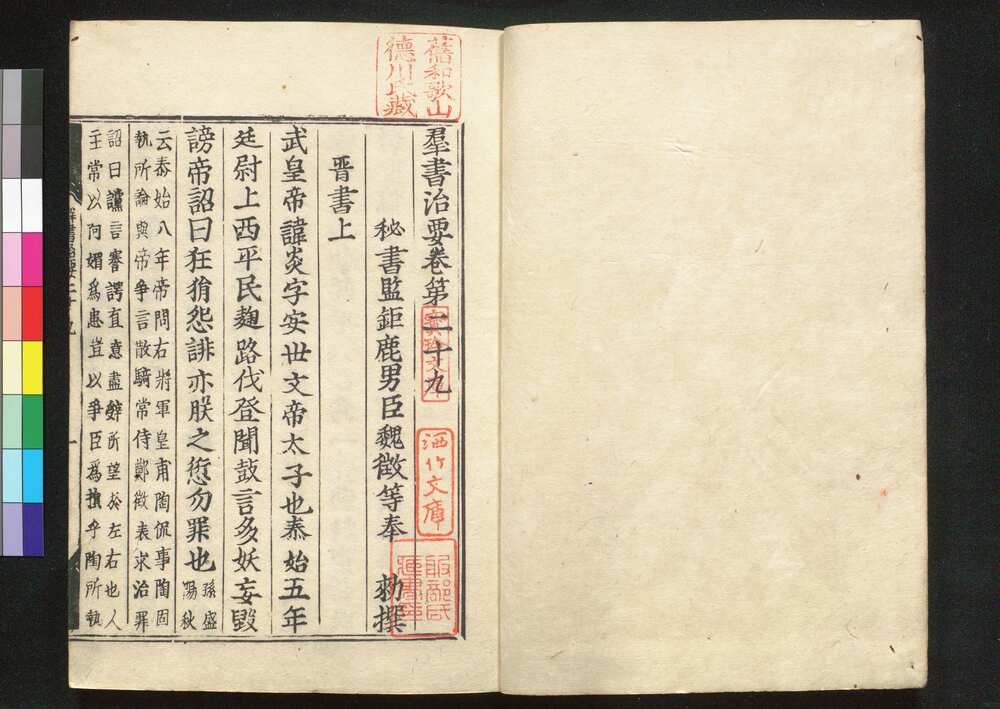 羣書治要卷第二十九
秘書監鉅鹿男臣魏徵等奉 勑撰
晋書上
武皇帝諱炎字安世文帝太子也泰始五年
廷尉上西平民麹路伐登聞鼓言多妖妄毀
謗帝詔曰狂狷怨誹亦朕之愆勿罪也孫盛
陽秋
云泰始八年帝問右將軍皇甫陶侃事陶固
執所論與帝争言散騎常侍鄭徵表求治罪
詔曰讜言謇諤直意盡辭所望於左右也人
主常以阿媚爲患豈以爭臣爲損乎陶所執
群書治要二十九
一
舊和歌山
德川氏藏
洒竹文庫
服部氏